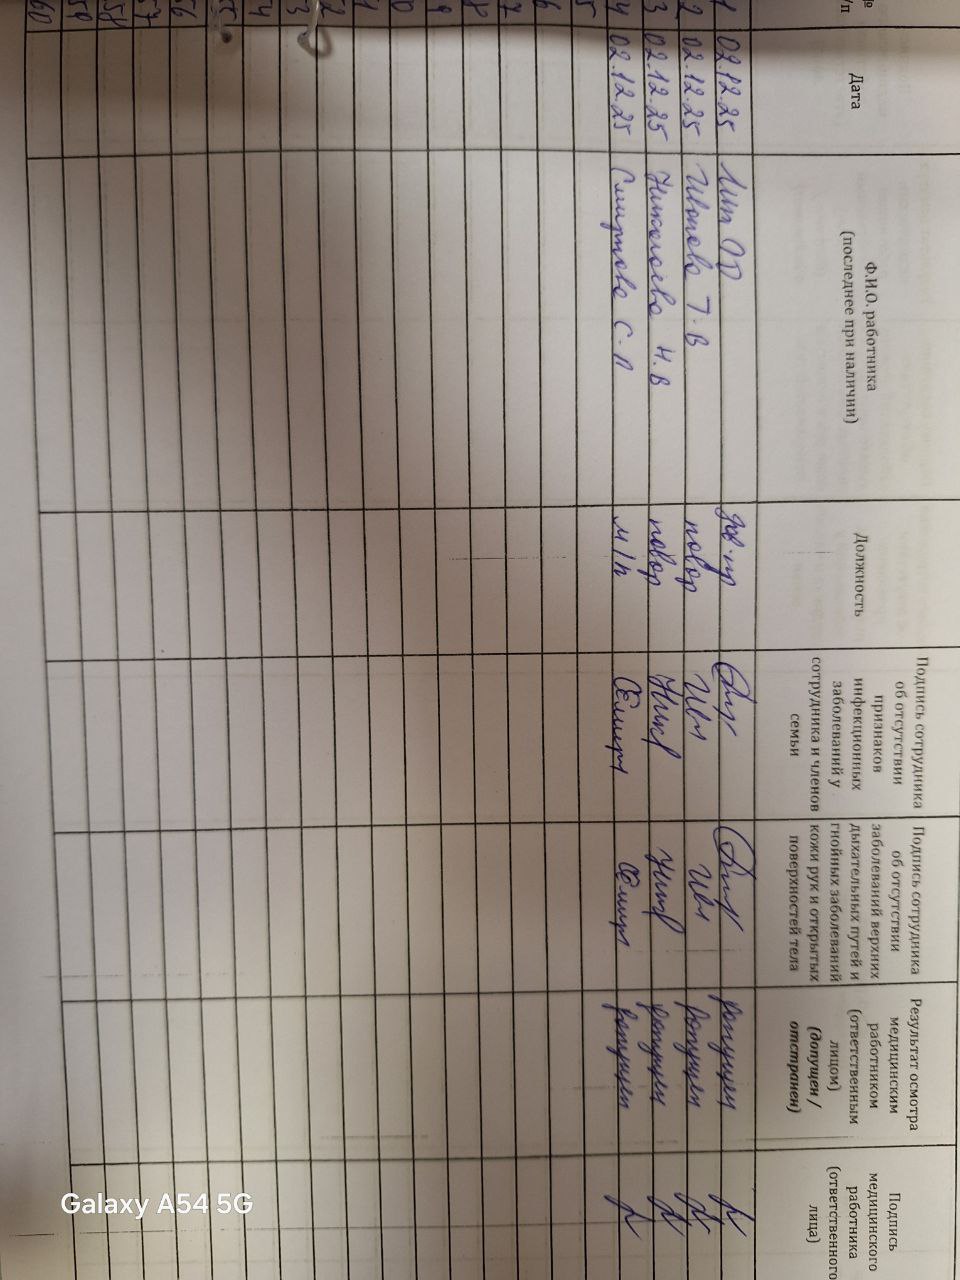 №
п/п
Дата
Ф.И.О. работника
(последнее при наличии)
Должность
Подпись сотрудника
об отсутствии
признаков
инфекционных
заболеваний у
сотрудника и членов
семьи
Подпись сотрудника
об отсутствии
заболеваний верхних
дыхательных путей и
гнойных заболеваний
кожи рук и открытых
поверхностей тела
Результат осмотра
медицинским
работником
(ответственным
лицом)
(допущен /
отстранен)
Подпись
медицинского
работника
(ответственного
лица)
1 02.12.25 допущен
2 02.12.25 Иванова Т.В повар Ив допущен
3 02.12.25 Николаева Н.В повар допущен
4 02.12.25 Смирнова С.П м/п допущен
5
6
7
8
9
0
1
2
3
4
55
56
57
58
59
60
Galaxy A54 5G